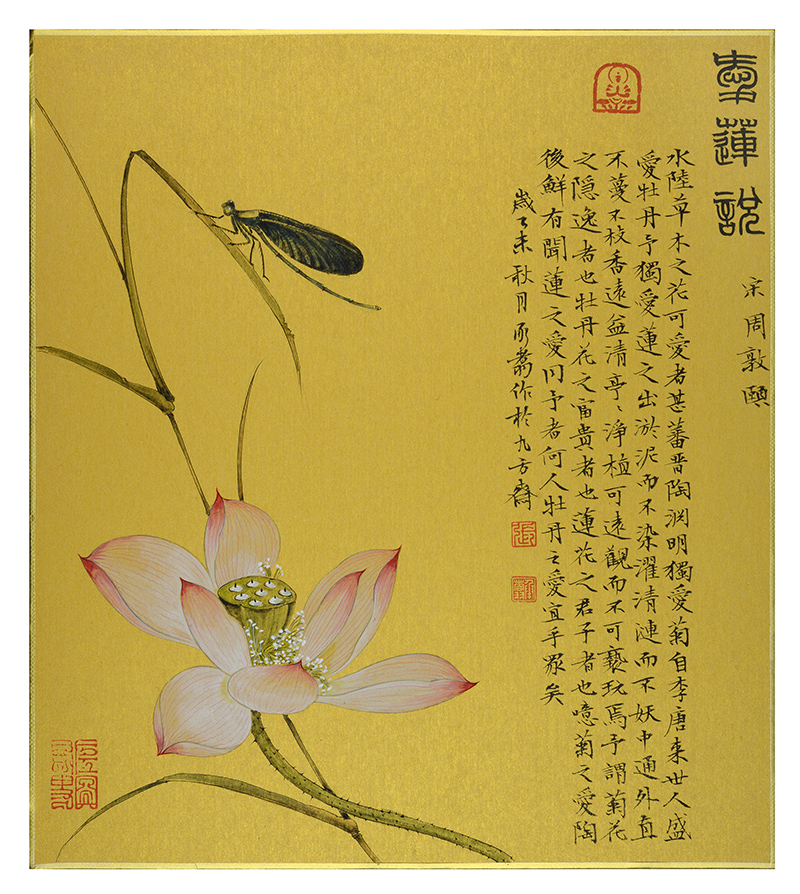 愛蓮說
宋周敦頤
水陸草木之花可愛者甚蕃晋陶渊明獨愛菊自李唐来世人盛
愛牡丹予獨愛蓮之出淤泥而不染濯清漣而不妖中通外直
不蔓不枝香遠益清亭〻淨植可遠觀而不可褻玩焉予謂菊花
之隱逸者也牡丹花之富貴者也蓮花之君子者也噫菊之愛陶
後鮮有聞蓮之愛同予者何人牡丹之愛宜乎眾矣
歲乙未秋月作於九方齋
張